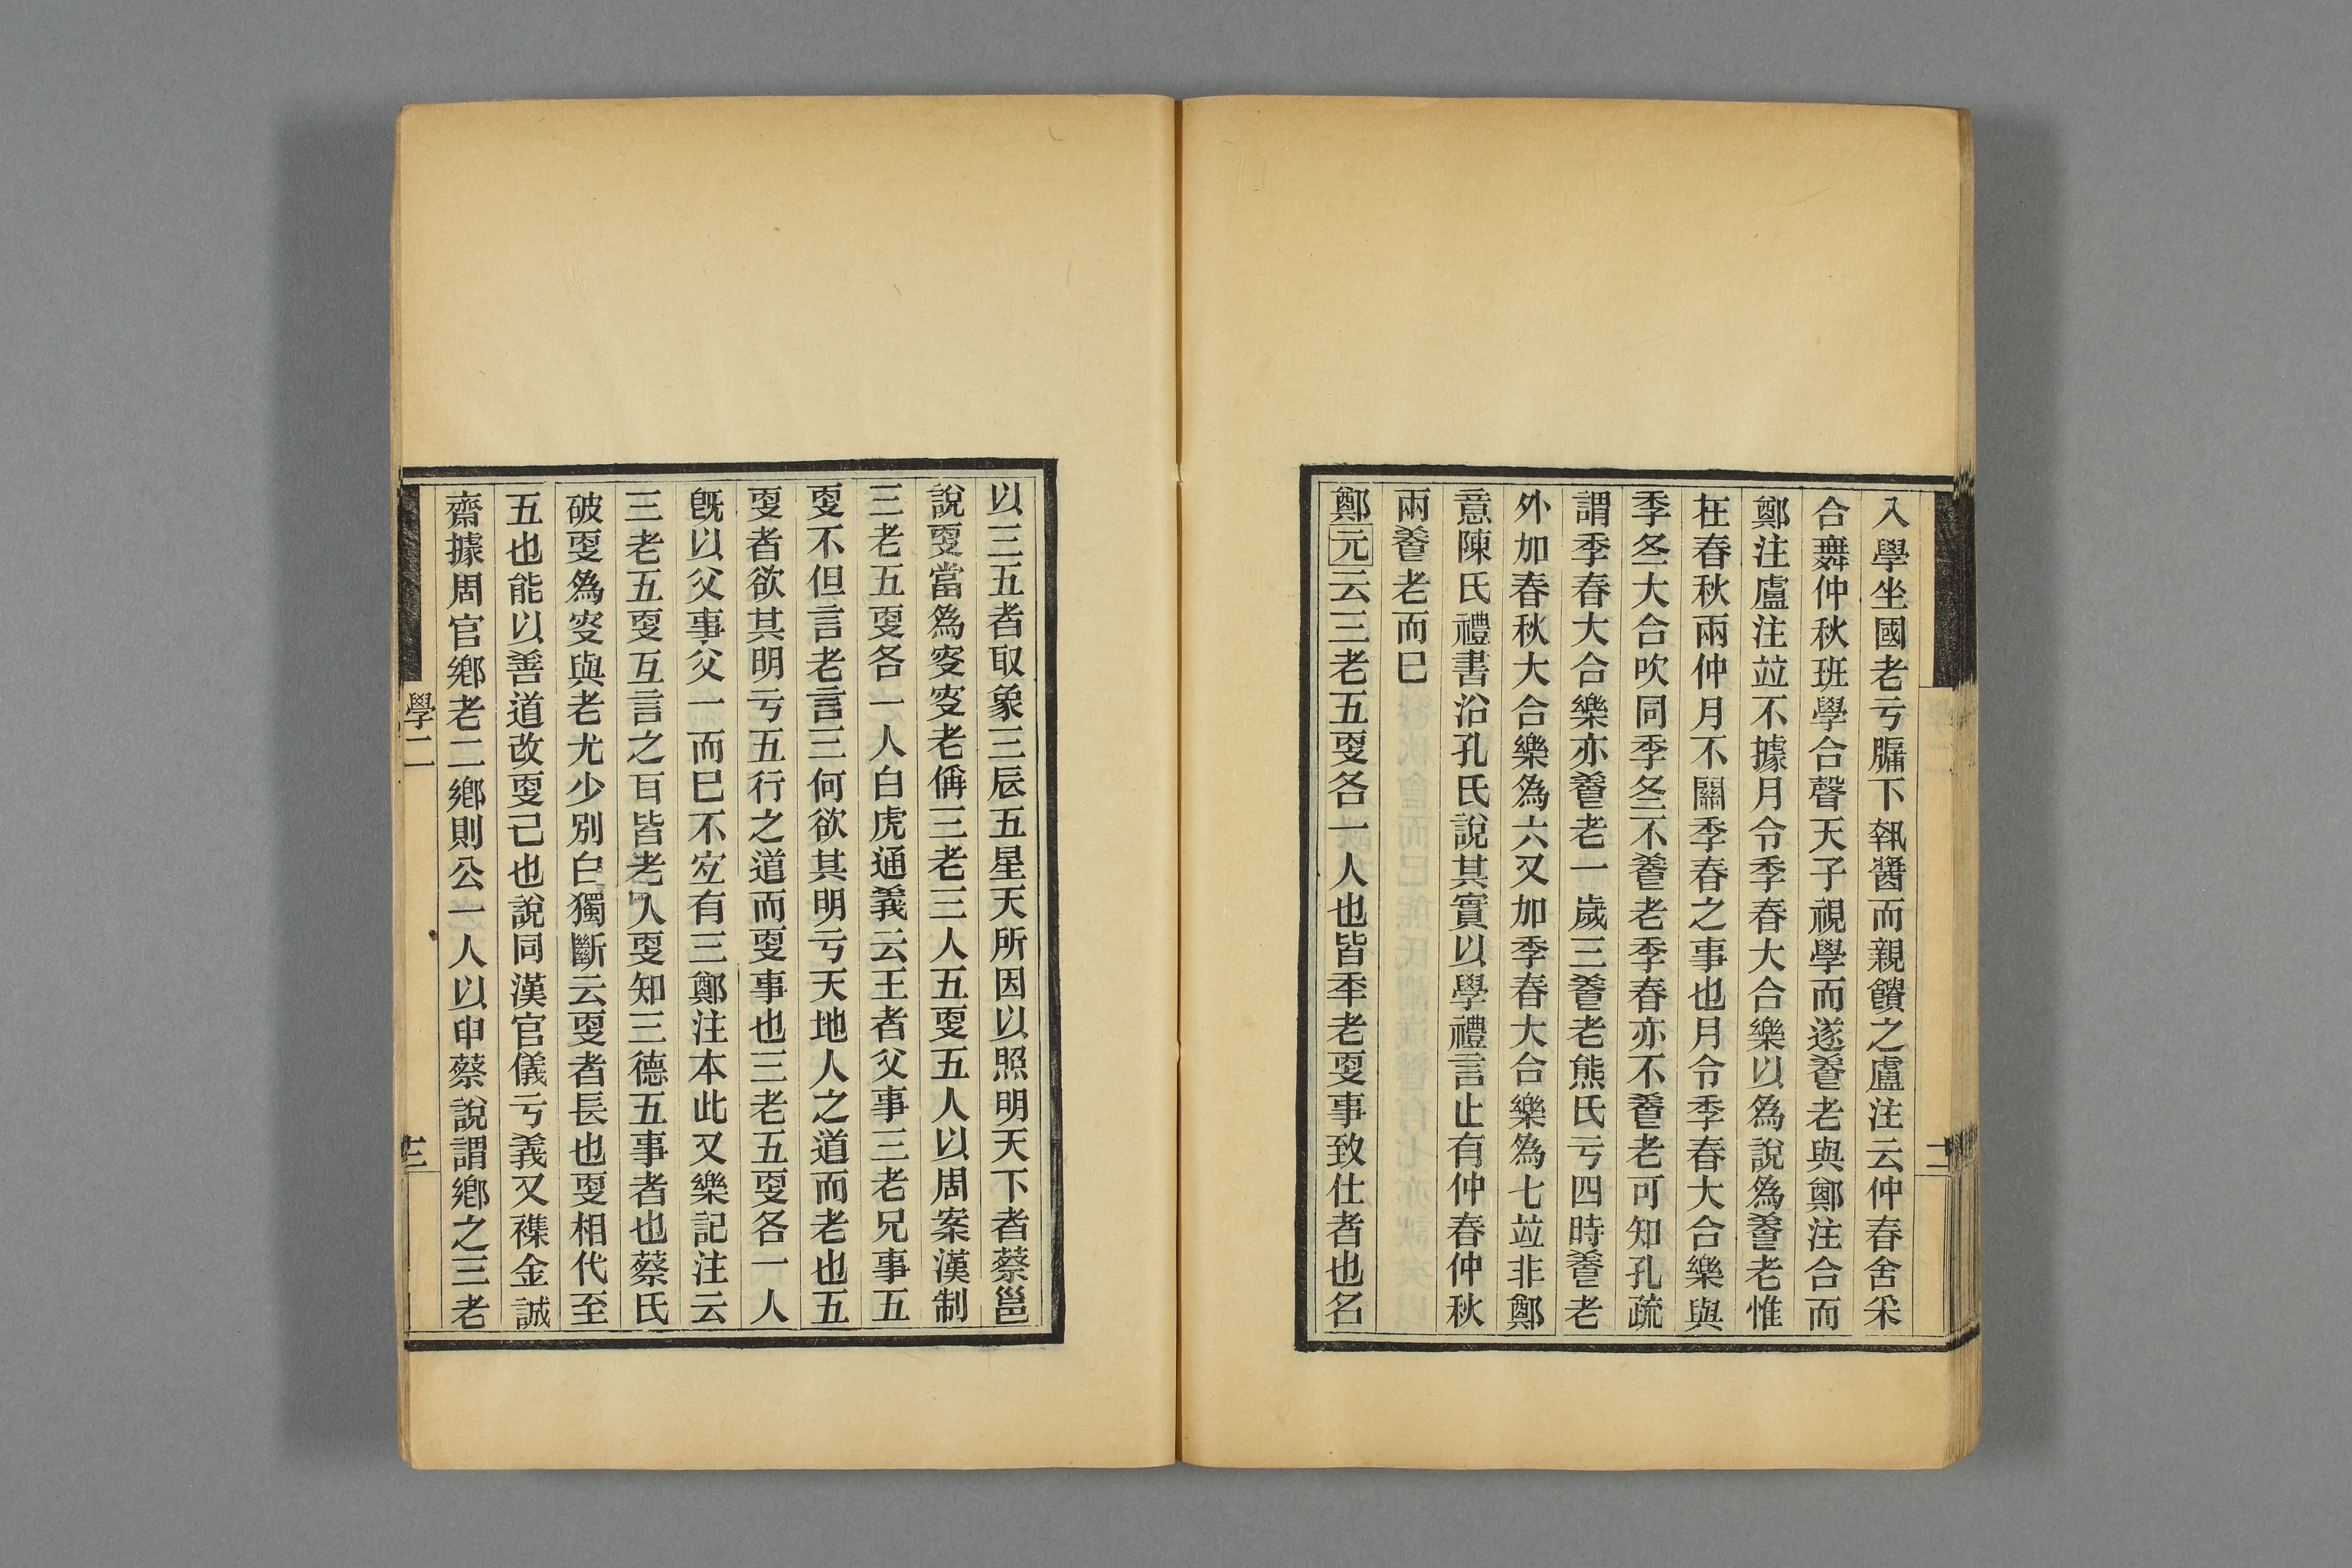 入學坐國老亏牖下執醬而親饋之盧注云仲春舍采
合舞仲秋班學合聲天子視學而遂養老與鄭注合而
鄭注盧注竝不據月令季春大合樂以爲說爲養老惟
在春秋兩仲月不關季春之事也月令季春大合樂與
季冬大合吹同季冬不養老季春亦不養老可知孔疏
謂季春大合樂亦養老一歲三養老熊氏亏四時養老
外加春秋大合樂爲六又加季春大合樂爲七竝非鄭
意陳氏禮書沿孔氏說其實以學禮言止有仲春仲秋
兩養老而巳
鄭元云三老五叓各一人也皆秊老叓事致仕者也名
以三五者取象三辰五星天所因以照明天下者蔡邕
說叓當爲叜叜老偁三老三人五叓五人以周案漢制
三老五叓各一人白虎通義云王者父事三老兄事五
叓不但言老言三何欲其明亏天地人之道而老也五
叓者欲其明亏五行之道而叓事也三老五叓各一人
旣以父事父一而巳不宐有三鄭注本此又樂記注云
三老五叓互言之耳皆老人叓知三德五事者也蔡氏
破叓爲叜與老尤少別白獨斷云叓者長也叓相代至
五也能以善道改叓己也說同漢官儀亏義又襍金誠
齋據周官鄉老二鄉則公一人以申蔡說謂鄉之三老
學二
三
二